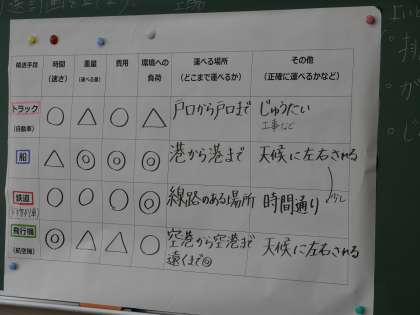 輸送手段 時間(速さ) 重量(運べる量) 費用 環境への負荷 運べる場所(どこまで運べるか) その他(正確に運べるかなど)
トラック(自動車) ○ △ ○ △ 戸口から戸口まで じゅうたい 工事など
船 △ ◎ ◎ ◎ 港から港まで 天候に左右される
鉄道 ○ ○ ○ ◎ 線路のある場所 時間通り 少し
飛行機(航空機) ◎ △ △ ○ 空港から空港まで 遠くまで◎ 天候に左右される